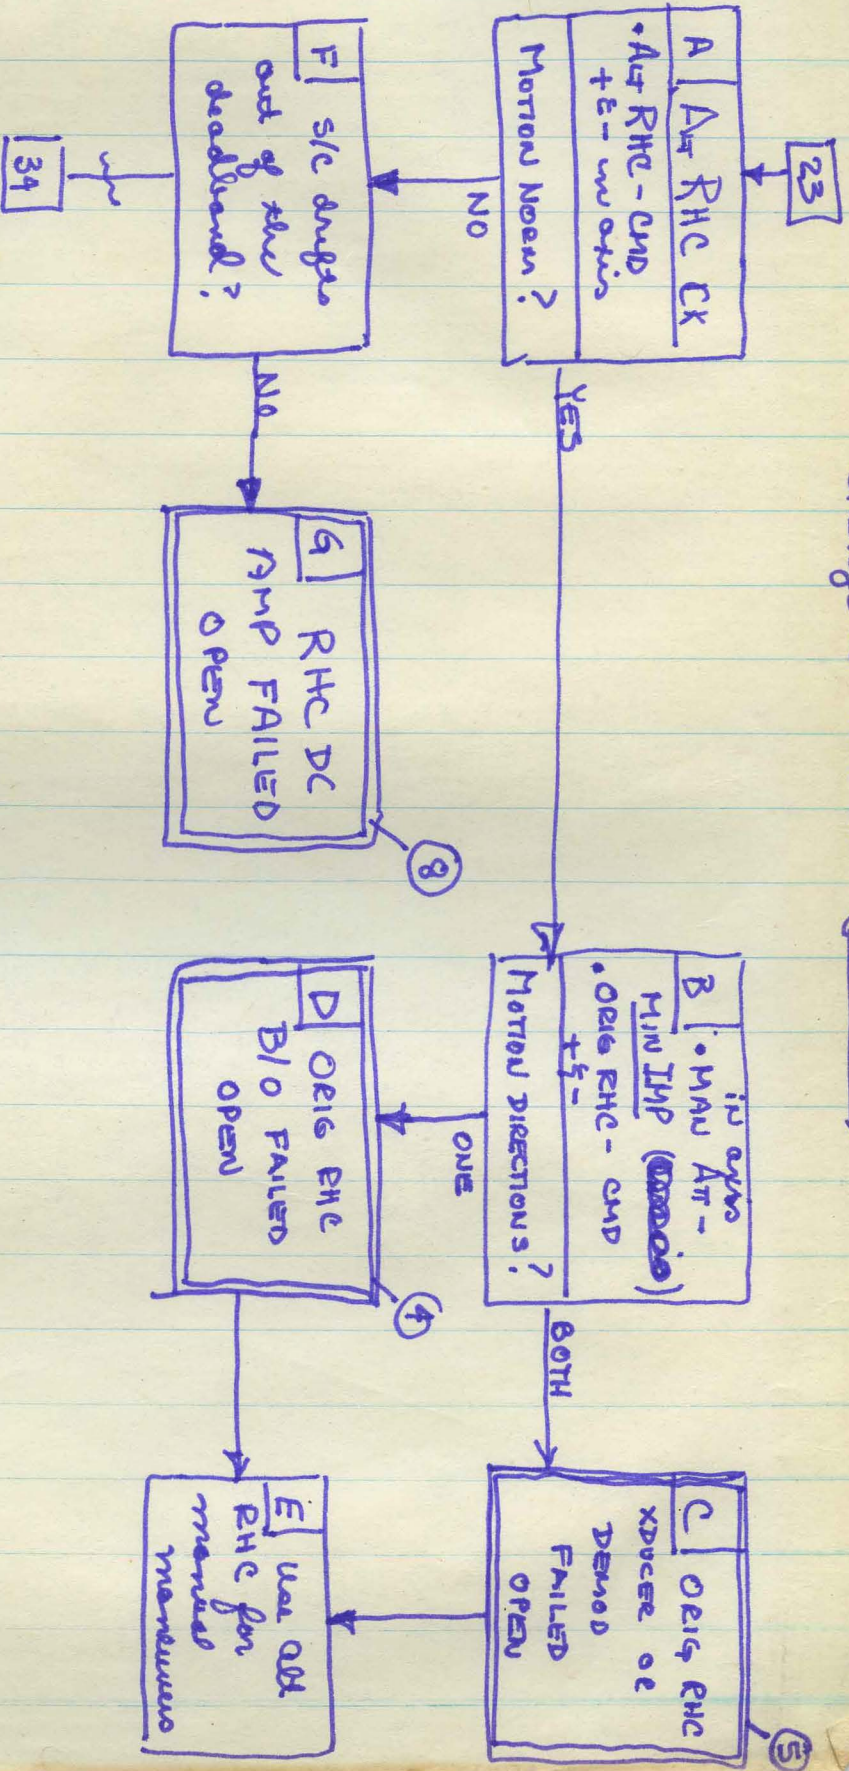 23
A ALT RHC CK
• ALT RHC - CMD
+ & - in axis
MOTION NORM?
NO
YES
F S/C drifts
out of the
deadband?
34
NO
G RHC DC
AMP FAILED
OPEN
8
in axis
B • MAN ATT -
MIN IMP
• ORIG RHC - CMD
+ & -
MOTION DIRECTIONS?
ONE
BOTH
D ORIG RHC
B/O FAILED
OPEN
4
C ORIG RHC
XDUCER OR
DEMOD
FAILED
OPEN
5
E Use alt
RHC for
manual
maneuvers